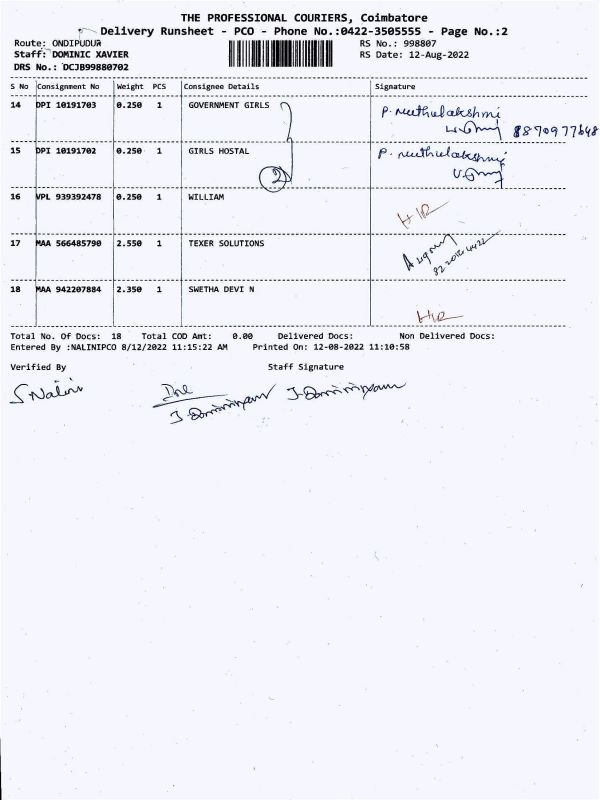 THE PROFESSIONAL COURIERS, Coimbatore
Delivery Runsheet - PCO - Phone No.:0422-3505555 - Page No.:2
Route: ONDIPUDUR
RS No.: 998807
Staff: DOMINIC XAVIER
RS Date: 12-Aug-2022
DRS No.: DCJB99880702
S No Consignment No Weight PCS Consignee Details Signature
14 DPI 10191703 0.250 1 GOVERNMENT GIRLS P. Muthulakshmi
8870977648
15 DPI 10191702 0.250 1 GIRLS HOSTAL P. Muthulakshmi
2
16 VPL 939392478 0.250 1 WILLIAM
17 MAA 566485790 2.550 1 TEXER SOLUTIONS
18 MAA 942207884 2.350 1 SWETHA DEVI N
Total No. Of Docs: 18 Total COD Amt: 0.00 Delivered Docs: Non Delivered Docs:
Entered By :NALINIPCO 8/12/2022 11:15:22 AM Printed On: 12-08-2022 11:10:58
Verified By Staff Signature
S Nalini